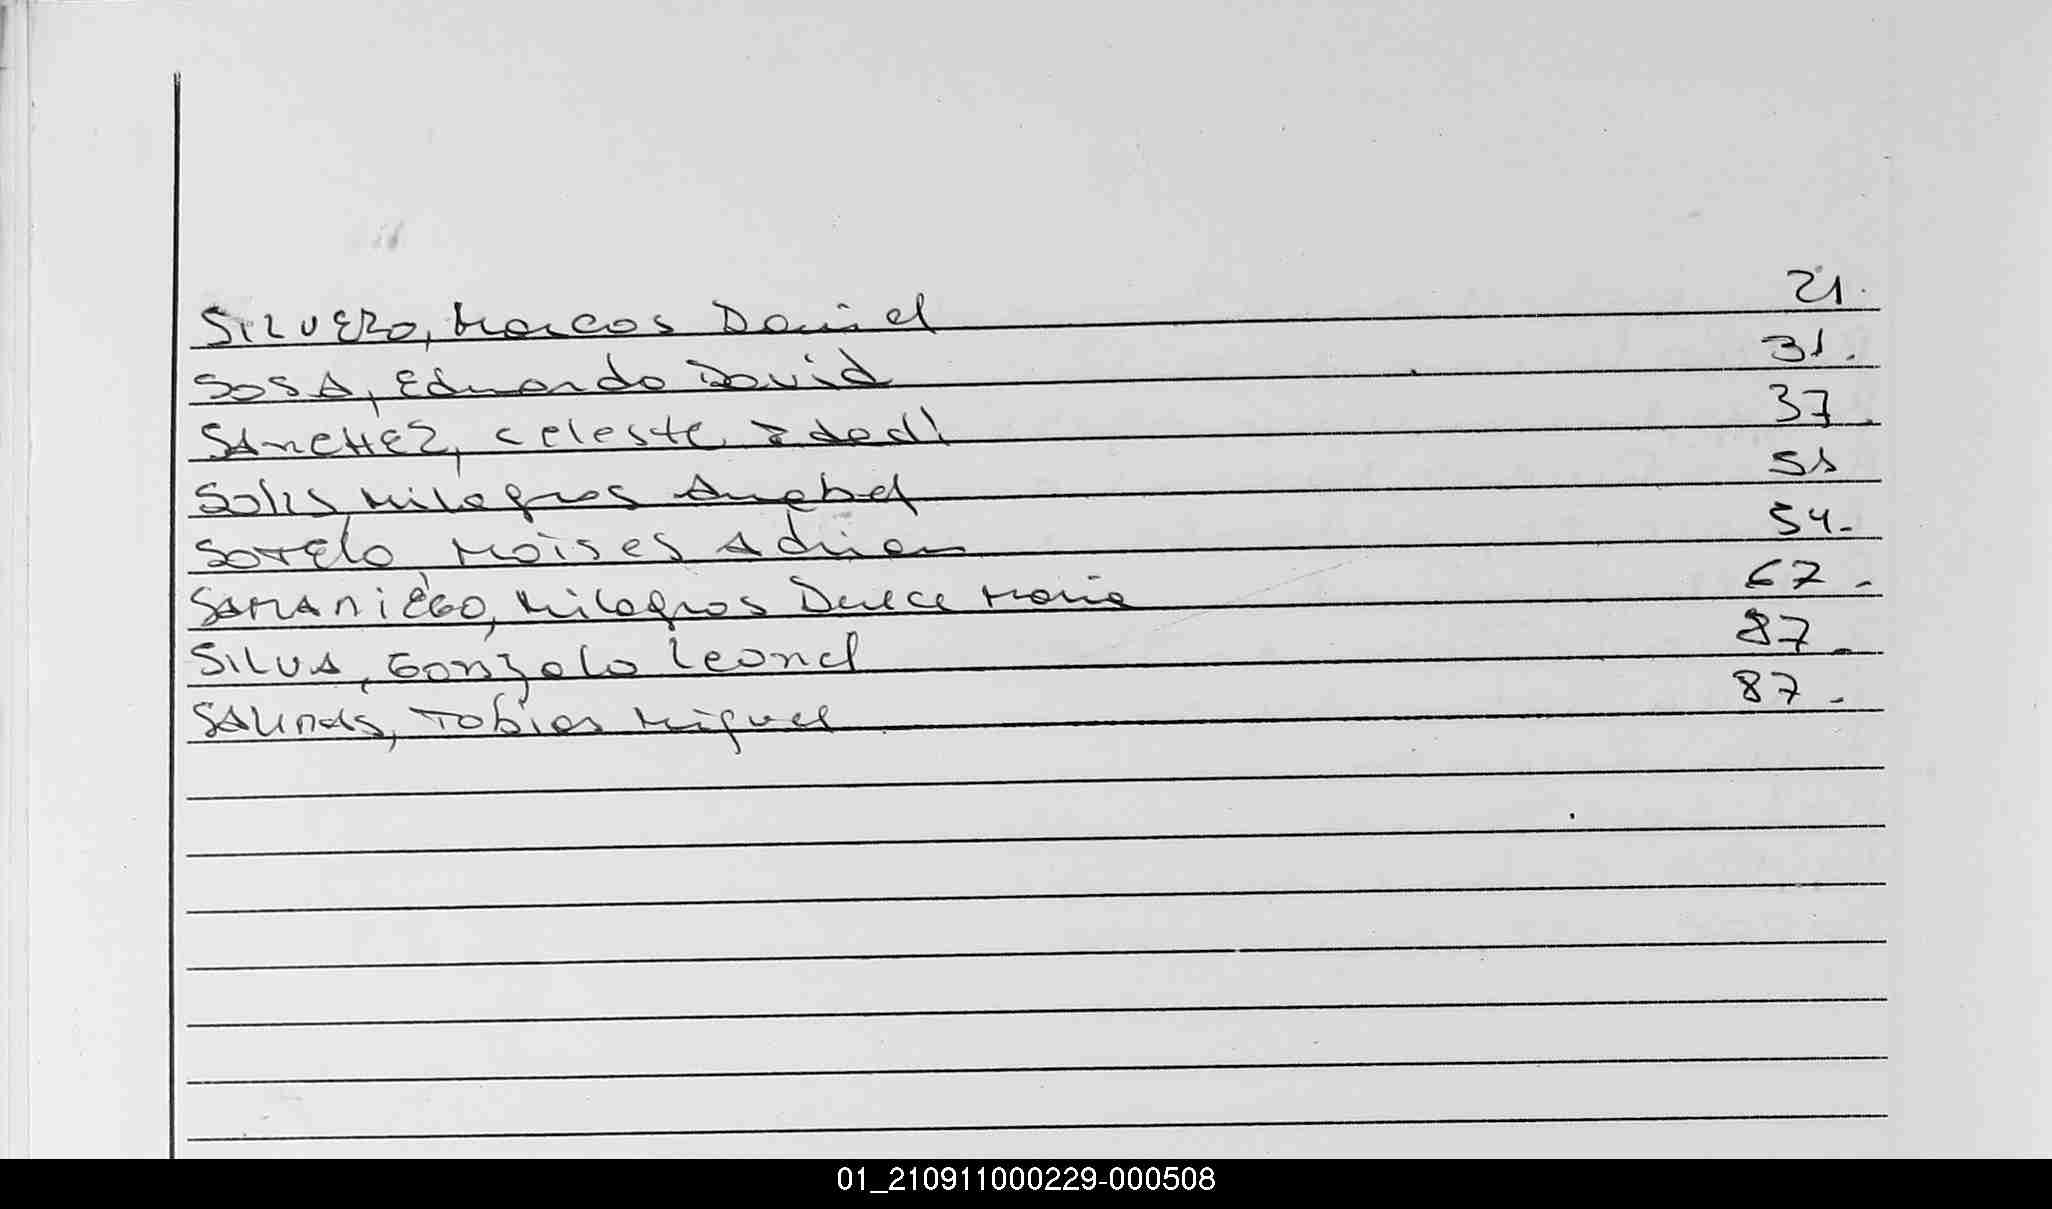 SILVERO, Marcos Daniel 21.
SOSA, Eduardo David 31.
SANCHEZ, Celeste 37.
Solis Milagros Anabel 51
Sotelo Moises Adrian 54.
SAMANIEGO, Milagros Dulce Maria 67.
SILVA, Gonzalo Leonel 87.
SALINAS, Tobias Miguel 87.
01_210911000229-000508